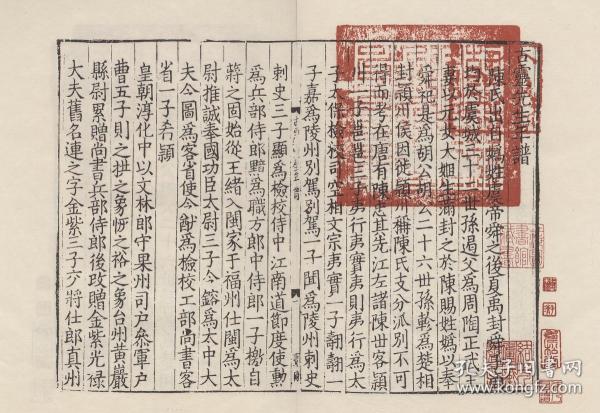 古靈先生年譜
陳氏出自媯姓虞帝舜之後夏禹封舜子商
均於虞城三十二世孫遏父為周陶正武王
妻以元女大姬生滿封之於陳賜姓媯以奉
舜祀是為胡公胡公二十六世孫軫為楚相
封潁川侯因徙潁川稱陳氏支分派別不可
得而考在唐有陳忠其先江左諸陳世客潁
川一子邕邕三子夷行夷實夷則夷行為太
子太保檢校司空相文宗夷實一子翿翿一
子嘉為陵州別駕別駕一子聞為陵州刺史
刺史三子顯為檢校侍中江南道節度使勳
為兵部侍郎黯為職方郎中侍郎一子櫓自
將之固始從王緒入閩家于福州仕閩為太
尉推誠奉國功臣太尉三子令鎔為太中大
夫令圖為客省使令猷為檢校工部尚書客
省一子希穎
皇朝淳化中以文林郎守果州司戶叅軍戶
曹五子則之拱之象仔之裕之象台州黃巖
縣尉累贈尚書兵部侍郎後攺贈金紫光祿
大夫舊名連之字金紫三子六將仕郎真州
孔夫子旧书网